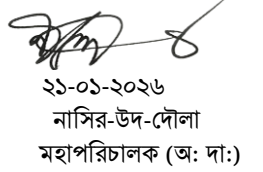 ২১-০১-২০২৬
নাসির-উদ-দৌলা
মহাপরিচালক (অ: দা:)